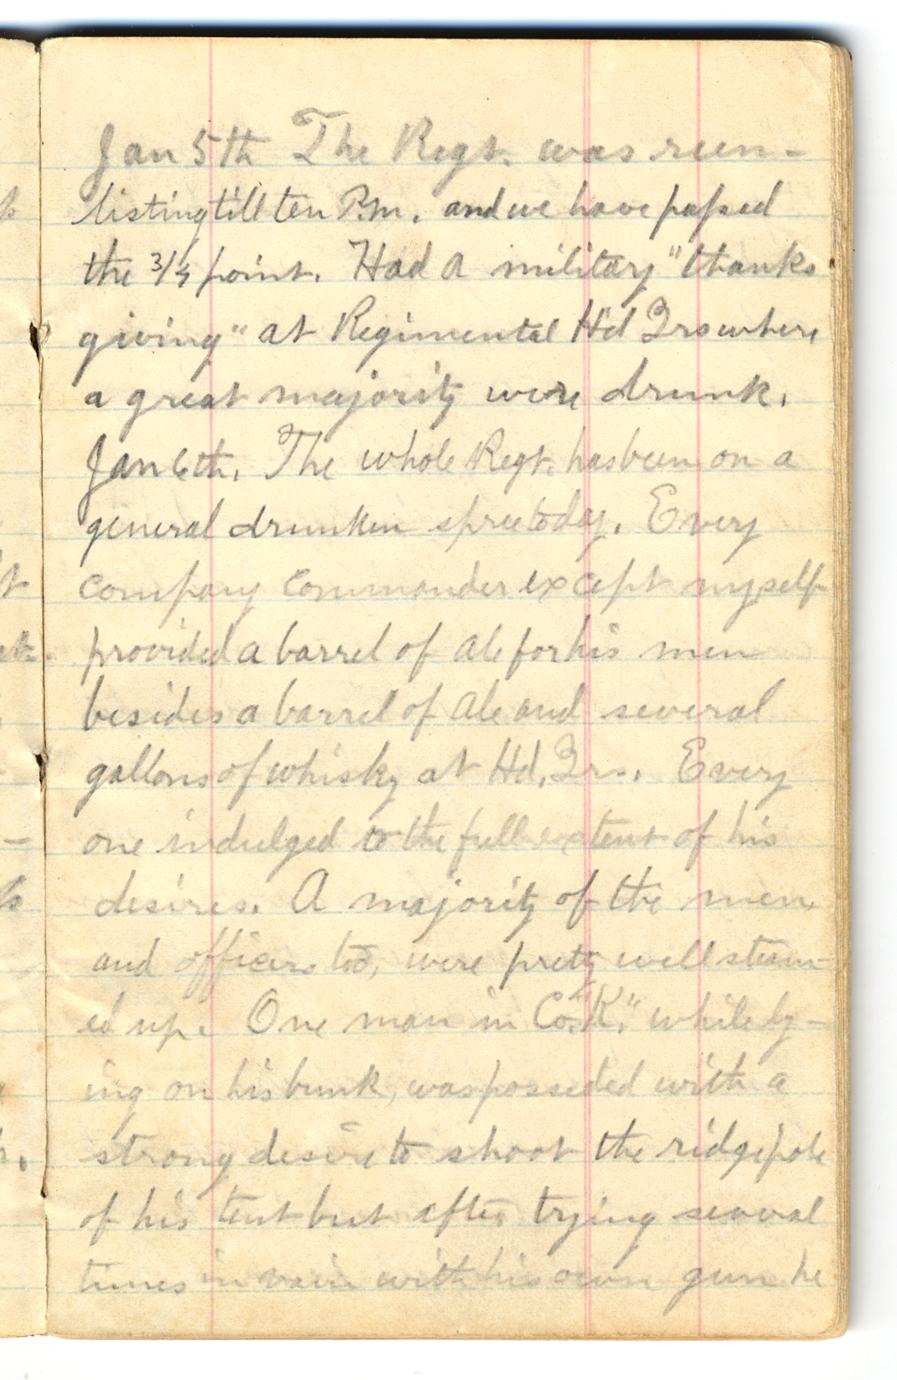 Jan 5th The Regt. was reen-
listing till ten P.m. and we have passed
the 3/4 point. Had a military "thanks
giving" at Regimental Hd Qrs where
a great majority were drunk.
Jan 6th. The whole Regt. has been on a
general drunken spree today. Every
company commander except myself
provided a barrel of ale for his men
besides a barrel of ale and several
gallons of whisky at Hd. Qrs. Every
one indulged to the full extent of his
desires. A majority of the men,
and officers too, were pretty well steam-
ed up. One man in Co. "K." while ly-
ing on his bunk, was posseded with a
strong desire to shoot the ridgepole
of his tent but after trying several
times in vain with his own gun he